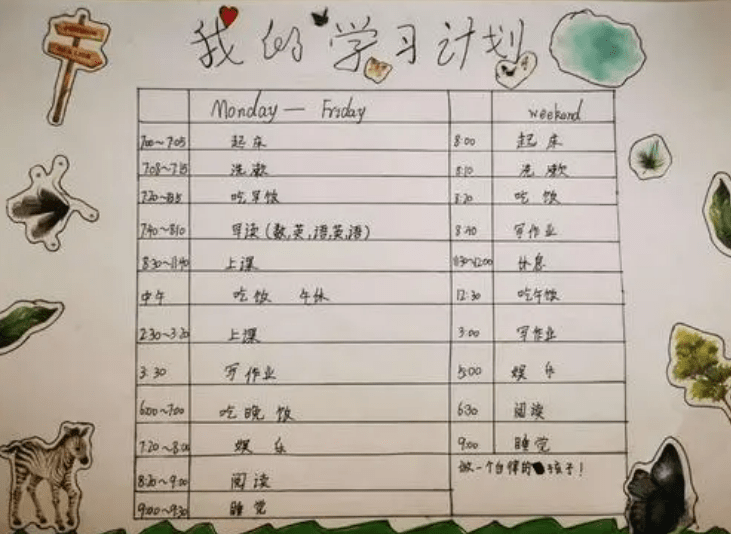 我的学习计划
Monday — Friday weekend
7:00~7:05 起床 8:00 起床
7:08~7:15 洗漱 8:10 洗漱
吃早饭 8:20 吃饭
7:40~8:10 早读(数,英,语,英,语) 8:40 写作业
8:30~11:40 上课 11:30~12:00 休息
中午 吃饭 午休 12:30 吃午饭
2:30~3:20 上课 3:00 写作业
3:30 写作业 5:00 娱乐
6:00~7:00 吃晚饭 6:30 阅读
7:20~8:00 娱乐 9:00 睡觉
8:20~9:00 阅读 做一个自律的孩子!
9:00~9:30 睡觉